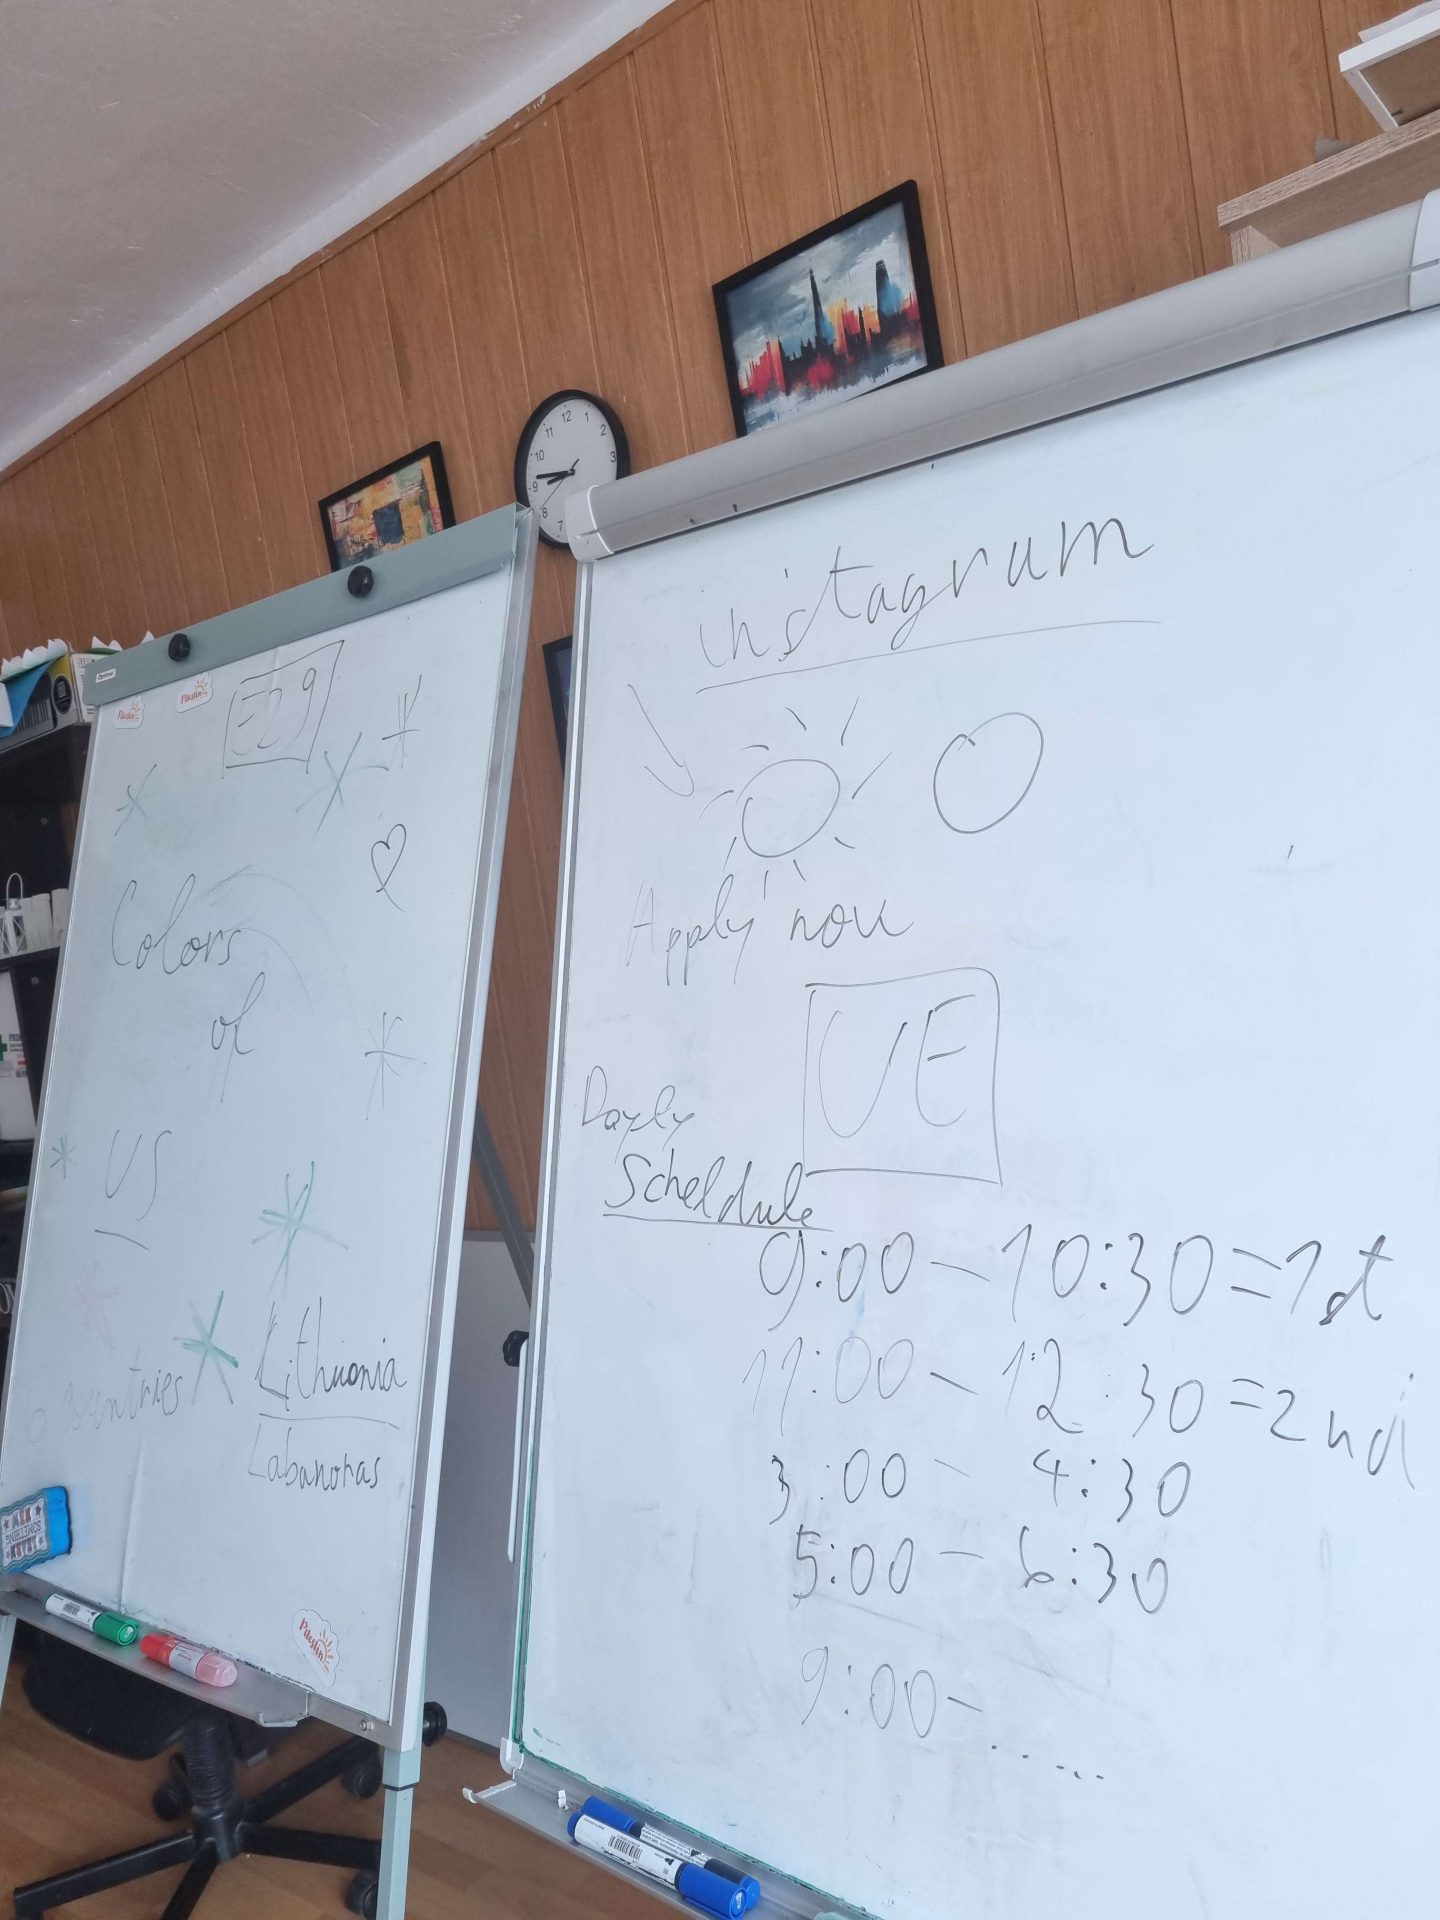 E29
Colors
of
US
6 countries
Lithuania
Labanoras
Pilestin
instagram
Apply now
UE
Dayly
Scheldule
9:00 - 10:30 = 1st
11:00 - 12:30 = 2nd
3:00 - 4:30
5:00 - 6:30
9:00 - .....
12
1
2
3
7
8
9
10
11